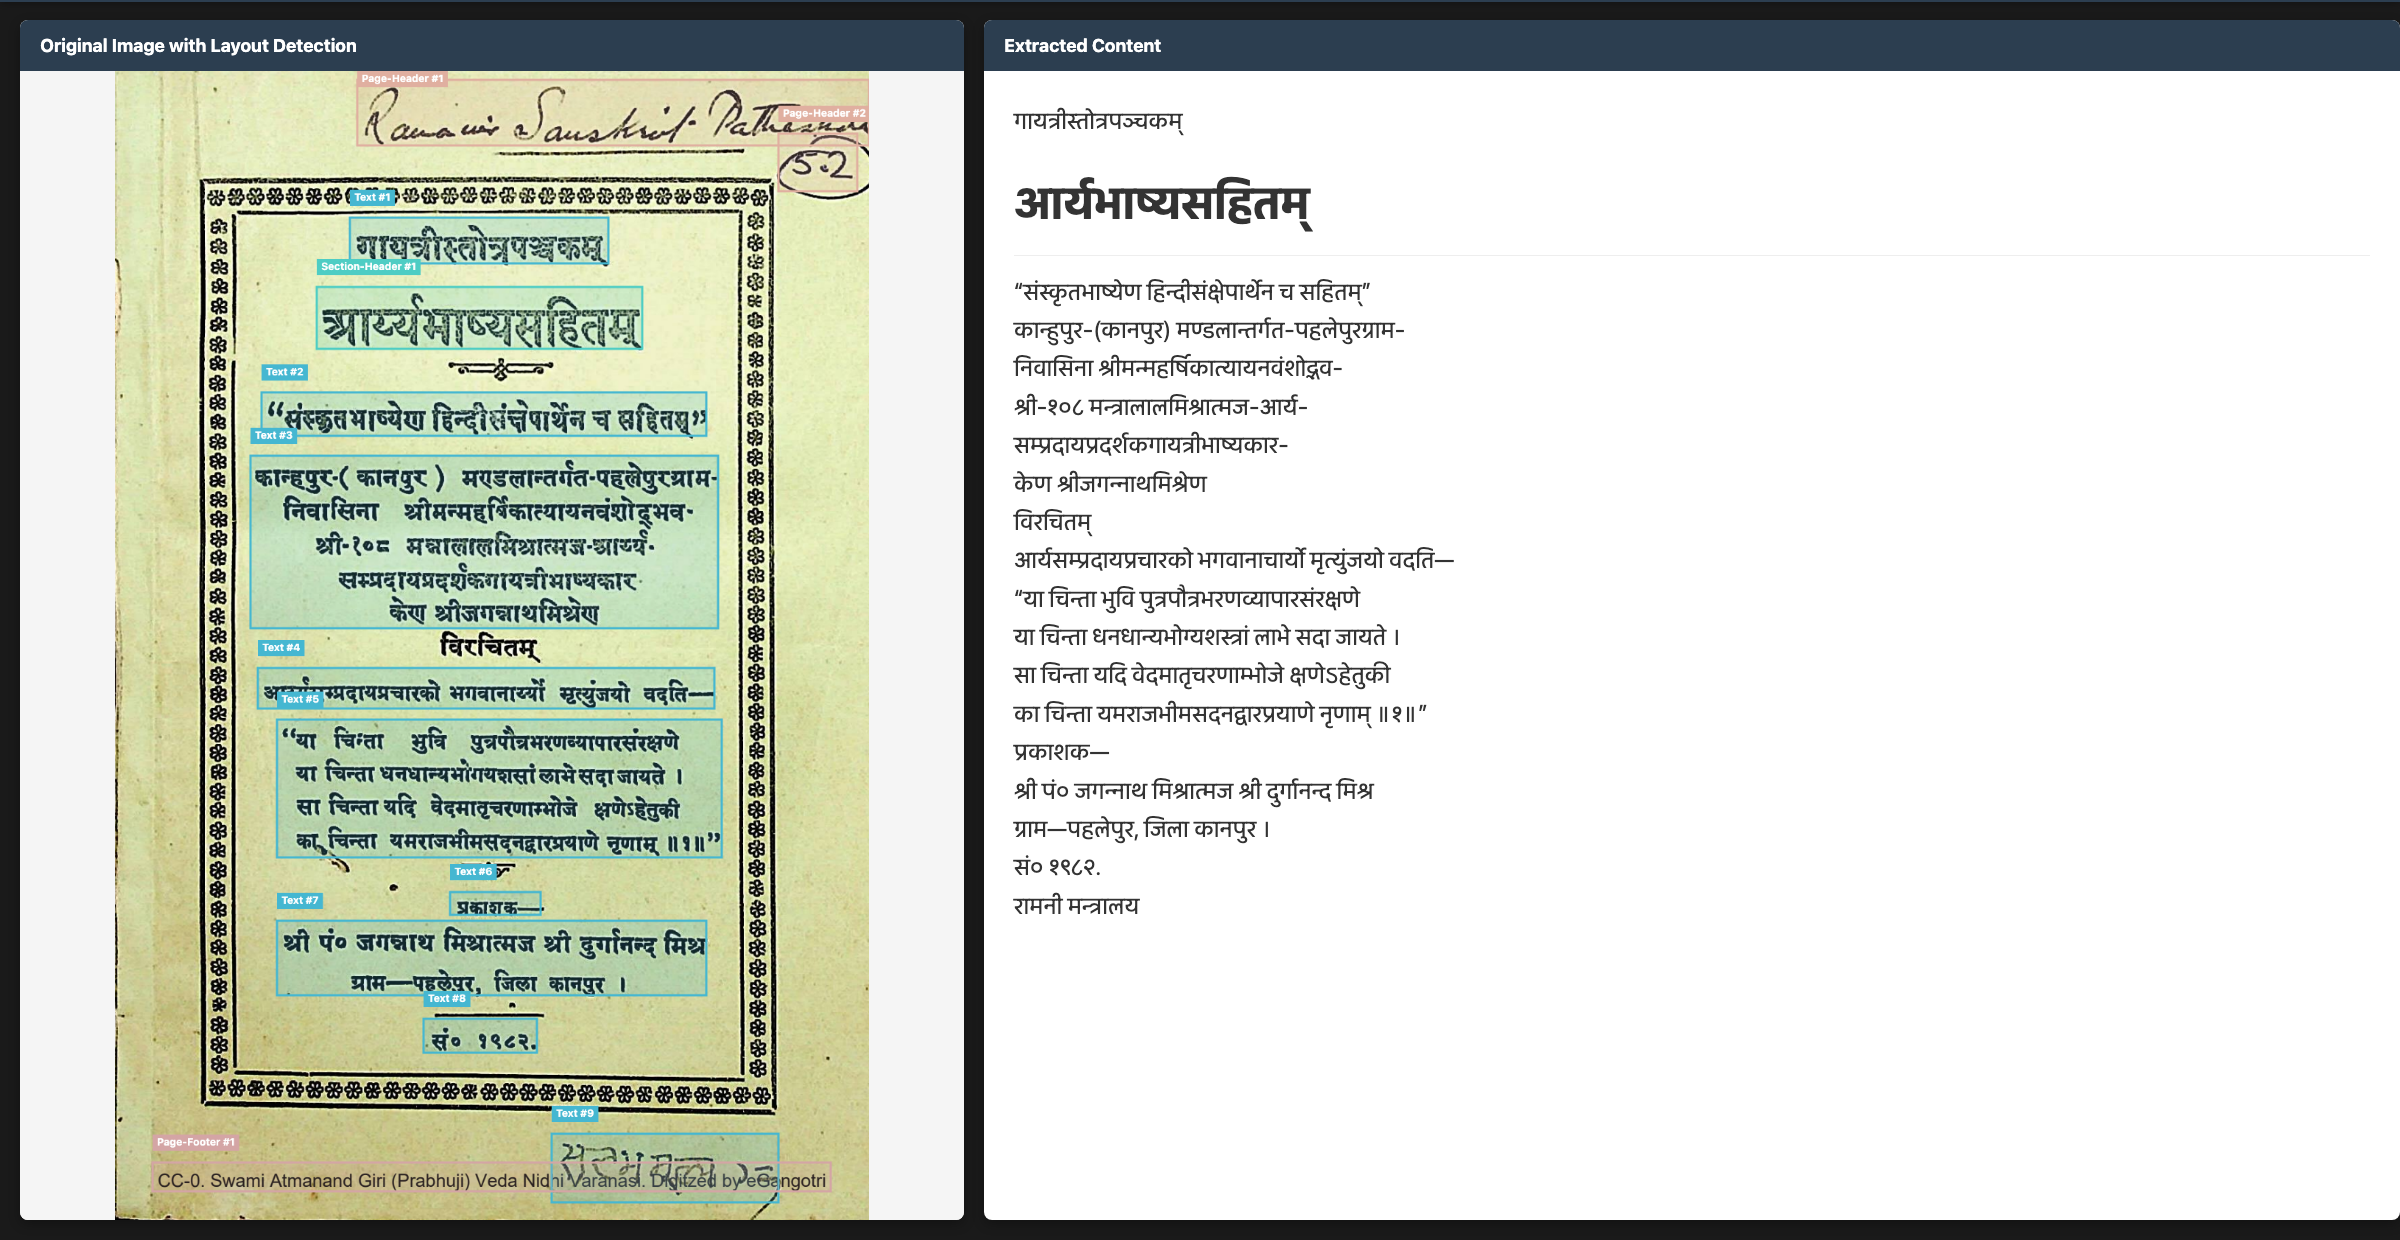 Original Image with Layout Detection
Page-Header #1
Sanskrit
Page-Header #2
52
Text #1
गायत्रीस्तोत्रपञ्चकम्
Section-Header #1
आर्य्यभाष्यसहितम्
Text #2
“संस्कृतभाष्येण हिन्दीसंक्षेपार्थेन च सहितम्”
Text #3
कान्हपुर-( कानपुर ) मण्डलान्तर्गत-पहलेपुरग्राम-
निवासिना श्रीमन्महर्षिकात्यायनवंशोद्भव-
श्री-१०८ मन्नालालमिश्रात्मज-आर्य्य-
सम्प्रदायप्रदर्शकगायत्रीभाष्यकार-
केण श्रीजगन्नाथमिश्रेण
विरचितम्
Text #4
भगवानार्य्यो मृत्युंजयो वदति—
Text #5
“या चिन्ता भुवि पुत्रपौत्रभरणव्यापारसंरक्षणे
या चिन्ता धनधान्यभोगयशसां लाभे सदा जायते ।
सा चिन्ता यदि वेदमातृचरणाम्भोजे क्षणेऽहेतुकी
का चिन्ता यमराजभीमसदनद्वारप्रयाणे नृणाम् ॥१॥”
Text #6
प्रकाशक—
Text #7
श्री पं० जगन्नाथ मिश्रात्मज श्री दुर्गानन्द मिश्र
ग्राम—पहलेपुर, जिला कानपुर ।
Text #8
सं० १९८२.
Text #9
Page-Footer #1
CC-0. Swami Atmanand Giri (Prabhuji) Veda Nidhi Varanasi. Digitzed by eGangotri
Extracted Content
गायत्रीस्तोत्रपञ्चकम्
आर्यभाष्यसहितम्
“संस्कृतभाष्येण हिन्दीसंक्षेपार्थेन च सहितम्”
कान्हुपुर-(कानपुर) मण्डलान्तर्गत-पहलेपुरग्राम-
निवासिना श्रीमन्महर्षिकात्यायनवंशोद्भव-
श्री-१०८ मन्त्रालालमिश्रात्मज-आर्य-
सम्प्रदायप्रदर्शकगायत्रीभाष्यकार-
केण श्रीजगन्नाथमिश्रेण
विरचितम्
आर्यसम्प्रदायप्रचारको भगवानाचार्यो मृत्युंजयो वदति—
“या चिन्ता भुवि पुत्रपौत्रभरणव्यापारसंरक्षणे
या चिन्ता धनधान्यभोग्यशस्त्रां लाभे सदा जायते ।
सा चिन्ता यदि वेदमातृचरणाम्भोजे क्षणेऽहेतुकी
का चिन्ता यमराजभीमसदनद्वारप्रयाणे नृणाम् ॥१॥”
प्रकाशक—
श्री पं० जगन्नाथ मिश्रात्मज श्री दुर्गानन्द मिश्र
ग्राम—पहलेपुर, जिला कानपुर ।
सं० १९८२.
रामनी मन्त्रालय